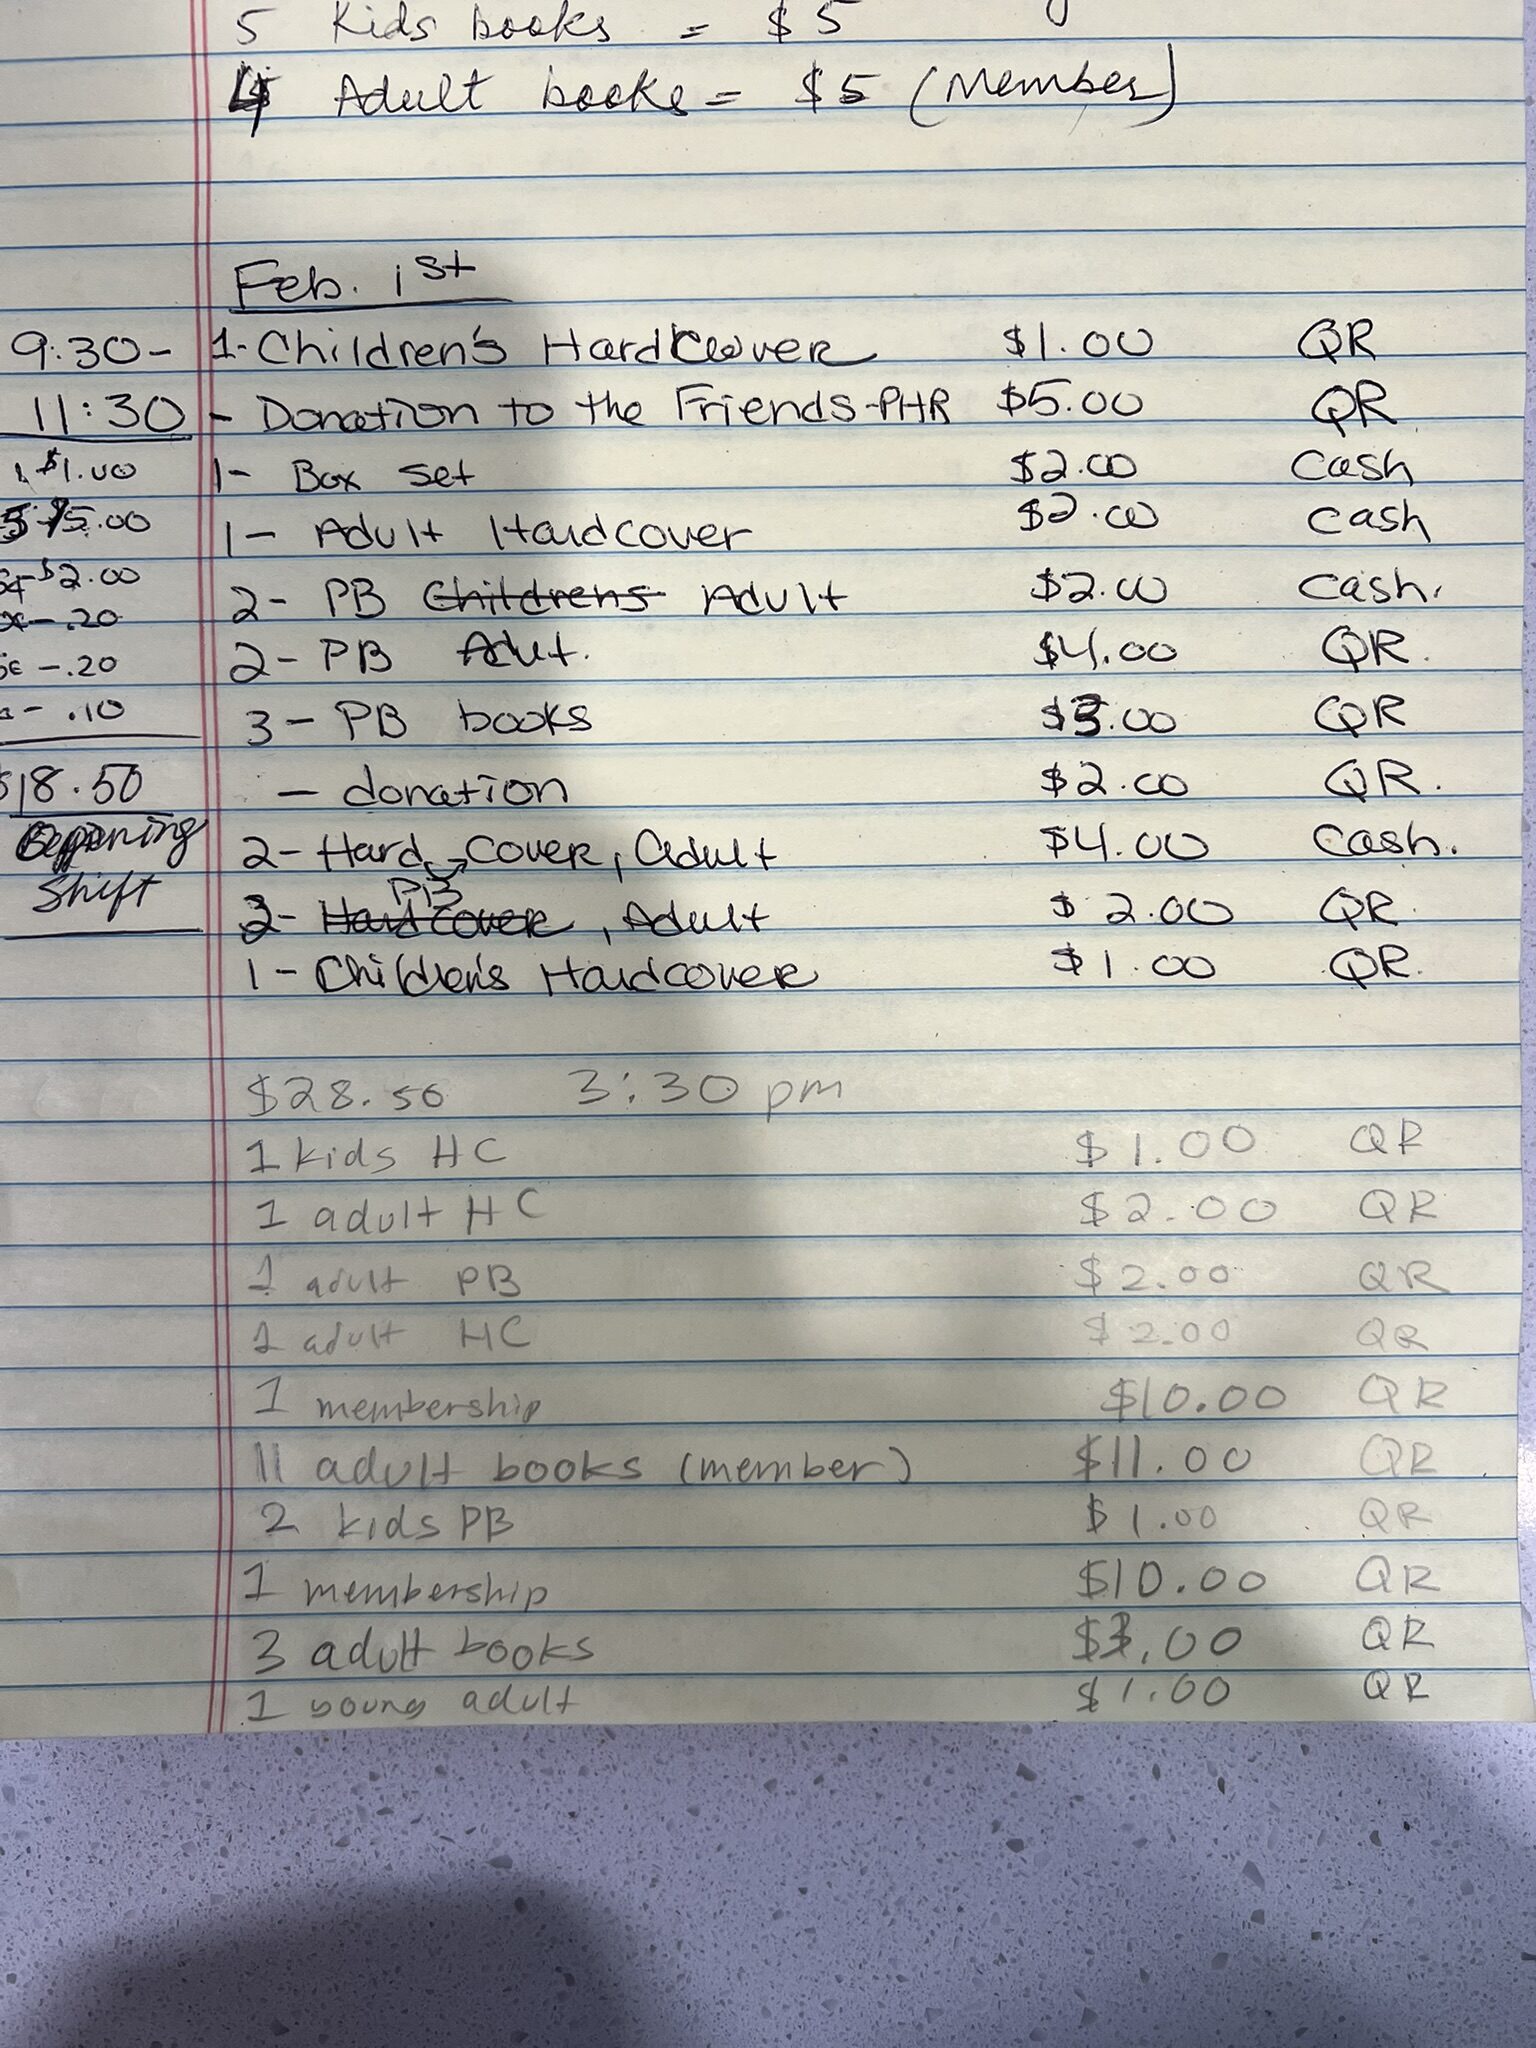 5 Kids books = $5
4 Adult books = $5 (Member)
Feb. 1st
9:30- 1- Children's Hardcover $1.00 QR
11:30 - Donation to the Friends-PHR $5.00 QR
$1.00 1- Box set $2.00 Cash
5.00 1- Adult Hardcover $2.00 cash
$2.00 2- PB Childrens Adult $2.00 cash.
- .20 2- PB Adult. $4.00 QR.
- .20 3- PB books $3.00 QR
- .10
$18.50 - donation $2.00 QR.
Shift 2- Hard Cover, adult $4.00 Cash.
PB
2- Hard Cover, Adult $2.00 QR.
1- Children's Hardcover $1.00 QR.
$28.50 3:30 pm
1 kids HC $1.00 QR
1 adult HC $2.00 QR
1 adult PB $2.00 QR
1 adult HC $2.00 QR
1 membership $10.00 QR
11 adult books (member) $11.00 QR
2 kids PB $1.00 QR
1 membership $10.00 QR
3 adult books $3.00 QR
1 young adult $1.00 QR